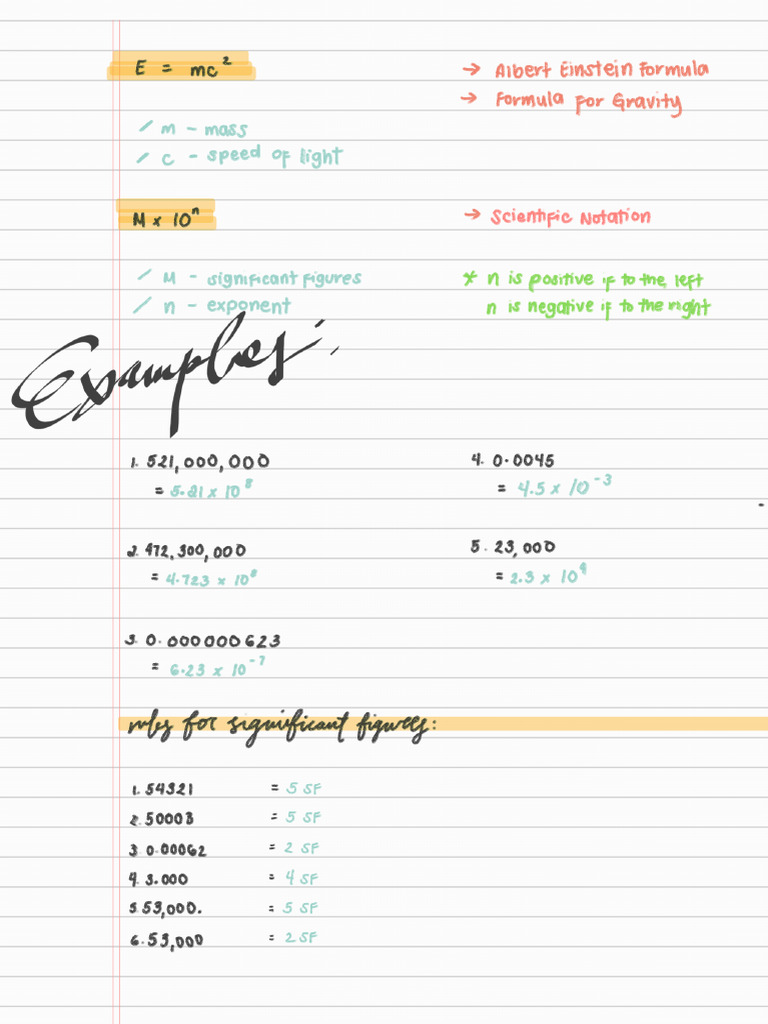 E = mc²
→ Albert Einstein Formula
→ Formula for Gravity
/ m - mass
/ c - speed of light
M x 10ⁿ
→ Scientific Notation
/ M - significant figures
/ n - exponent
* n is positive if to the left
n is negative if to the right
Examples:
1. 521,000,000
= 5.21 x 10⁸
2. 472,300,000
= 4.723 x 10⁸
3. 0.000000623
= 6.23 x 10⁻⁷
4. 0.0045
= 4.5 x 10⁻³
5. 23,000
= 2.3 x 10⁴
rules for significant figures:
1. 54321 = 5 SF
2. 50003 = 5 SF
3. 0.00062 = 2 SF
4. 3.000 = 4 SF
5. 53,000. = 5 SF
6. 53,000 = 2 SF